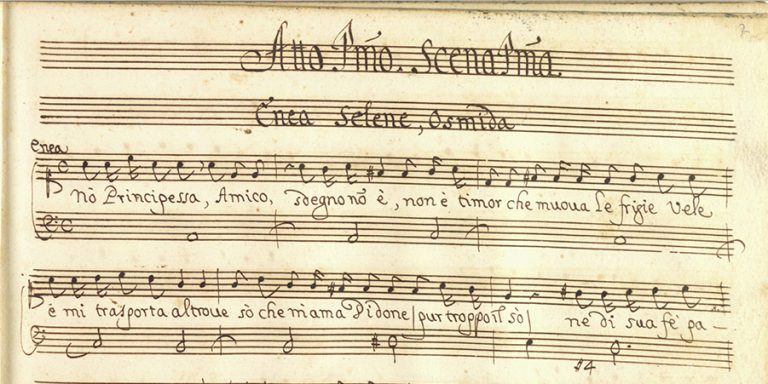 2
Atto P̃mo. Scena P̃ma
Enea Selene, Osmida
Enea
Nò Principessa, Amico, sdegno nõ è, non è timor che muoua le frigie Vele
è mi trãsporta altroue sò che m'ama Didone | pur troppo il sò | ne di sua fe' pa–
#4